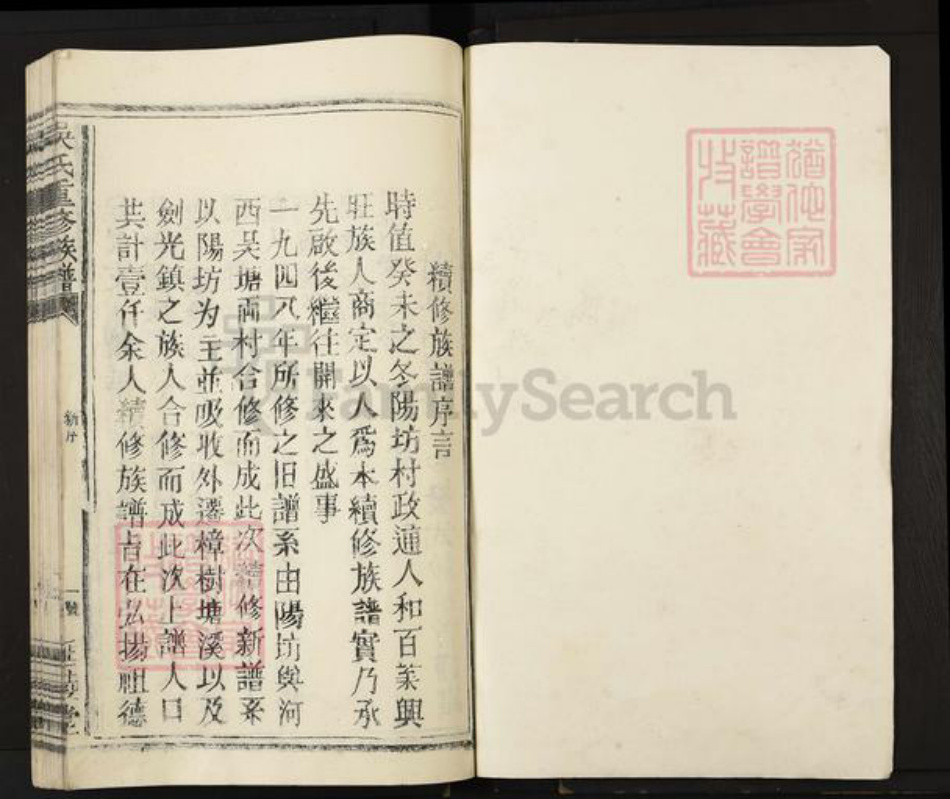 續修族譜序言
時值癸未之冬陽坊村政通人和百業興
旺族人商定以人爲本續修族譜實乃承
先啟後繼往開來之盛事
一九四八年所修之旧譜系由陽坊與河
西吴塘両村合修而成此次續修新譜系
以陽坊为主並吸收外遷樟樹塘溪以及
劍光鎮之族人合修而成此次上譜人口
共計壹仟余人續修族譜旨在弘揚祖德
吴氏重修族譜
新序
一號
FamilySearch
家
譜學會
收藏